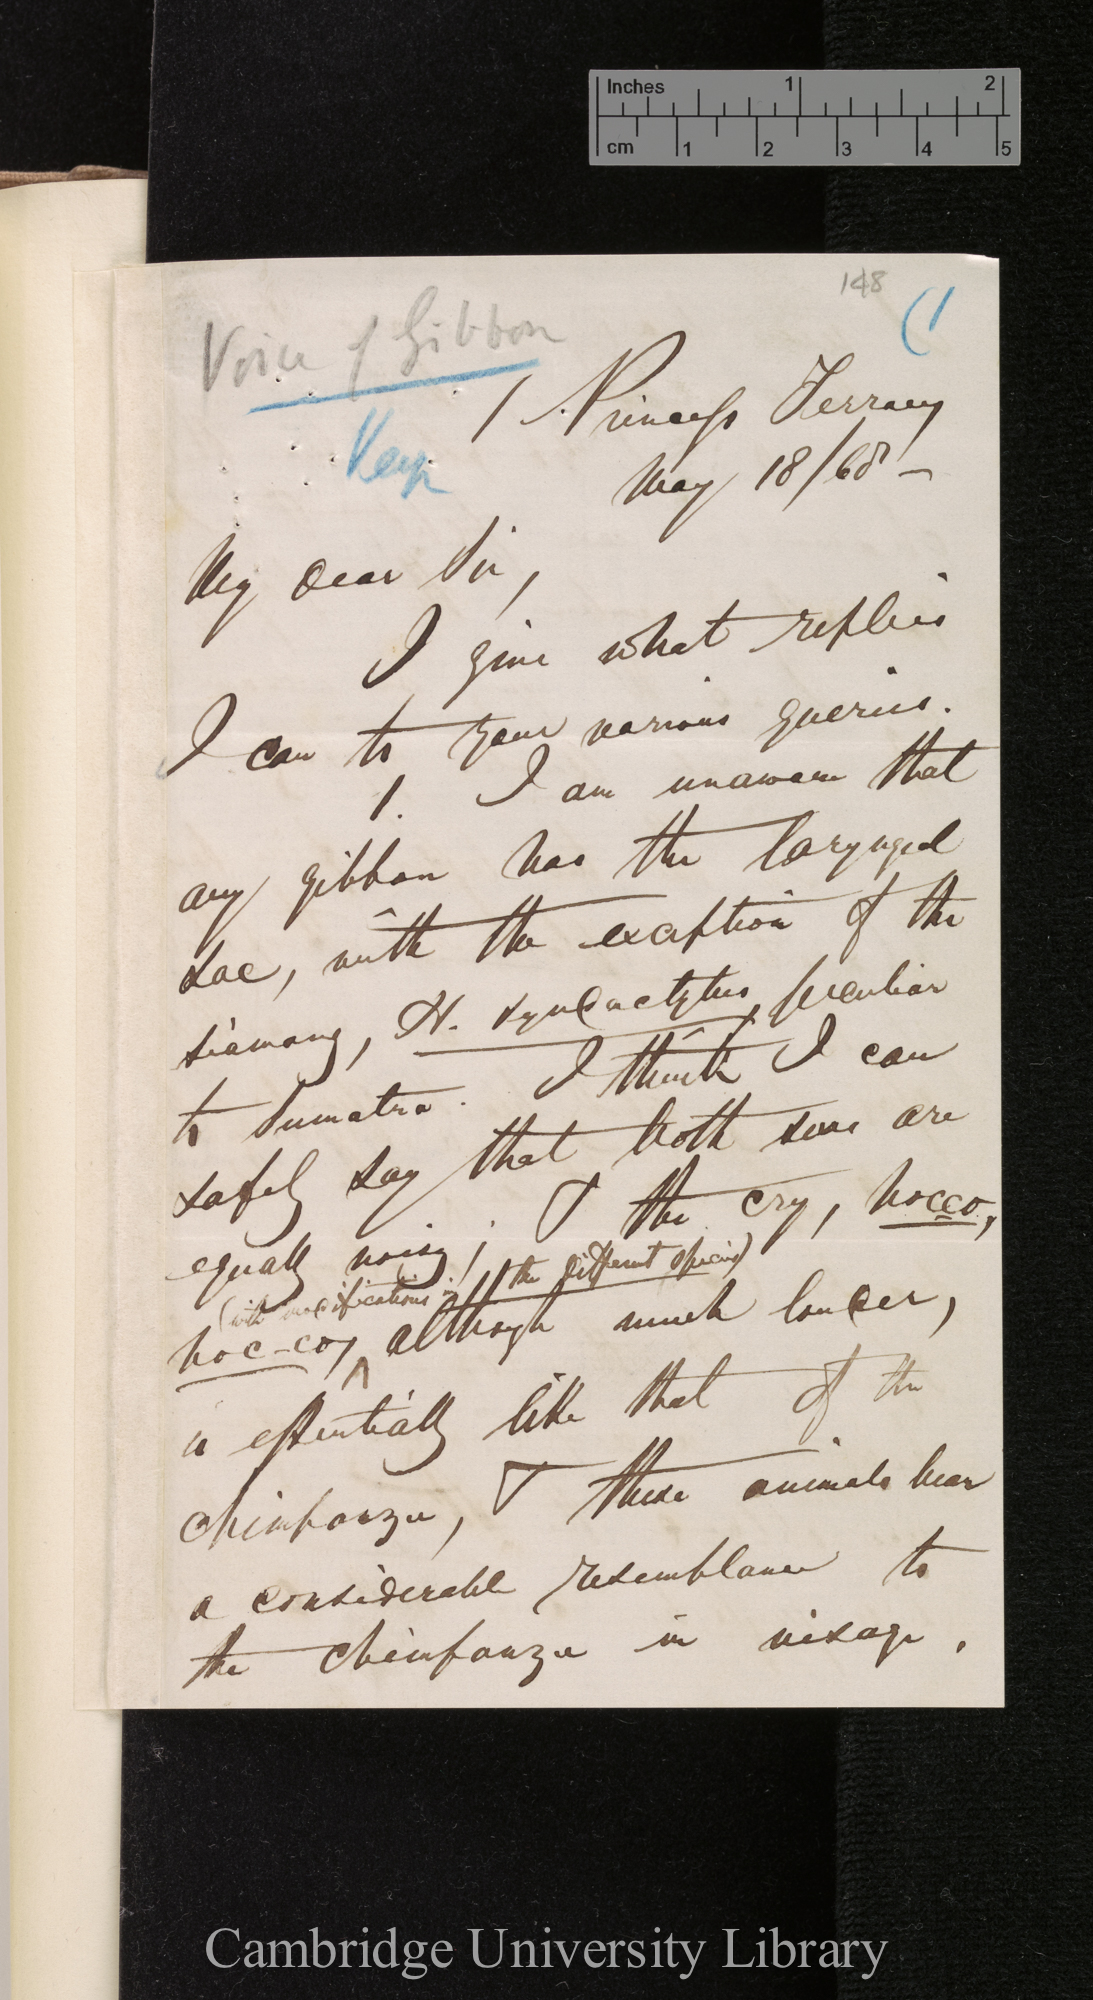 Inches 1 2
cm 1 2 3 4 5
148
(1
Voice of Gibbon
Keep
1 Princess Terrace
May 18/68 –
My dear Sir,
I give what replies
I can to your various queries.
1. I am unaware that
any gibbon has the laryngeal
sac, with the exception of the
siamang, H. syndactylus, peculiar
to Sumatra. I think I can
safely say that both sexes are
equally noisy; & the cry, hocco,
(with modifications in the different species)
hoc-co, ^ although much louder,
is essentially like that of the
chimpanzee, & these animals bear
a considerable resemblance to
the chimpanzee in visage.
Cambridge University Library